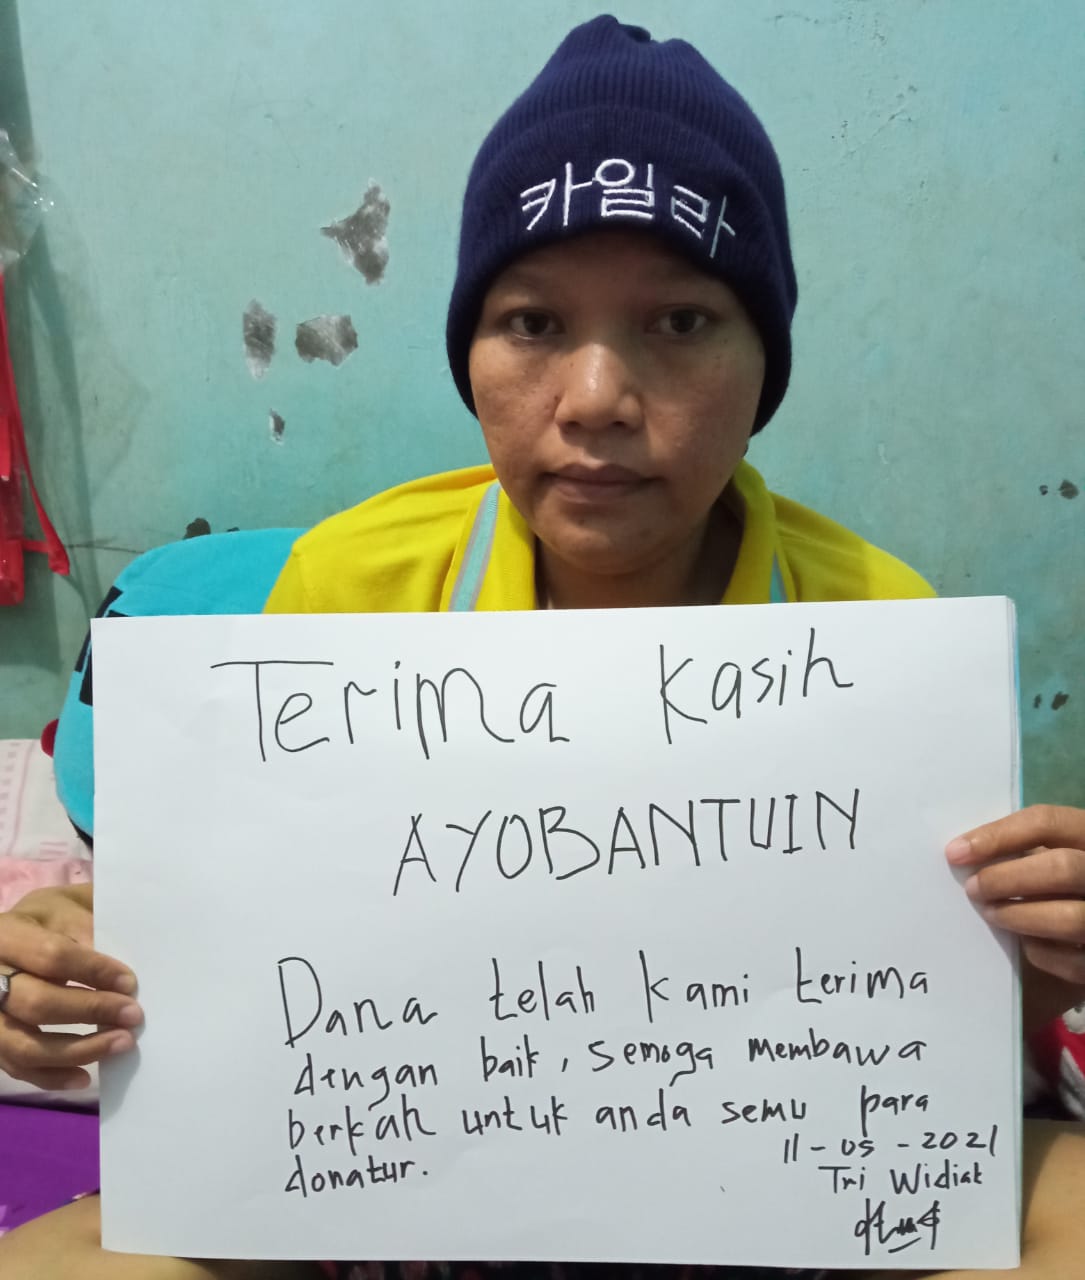 카일라
Terima Kasih
AYOBANTUIN
Dana telah kami terima
dengan baik, semoga membawa
berkah untuk anda semu para
donatur.
11-05-2021
Tri Widiat